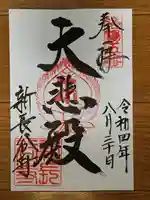 奉拝
令和四年
八月三十日
天悲殿
新長谷寺